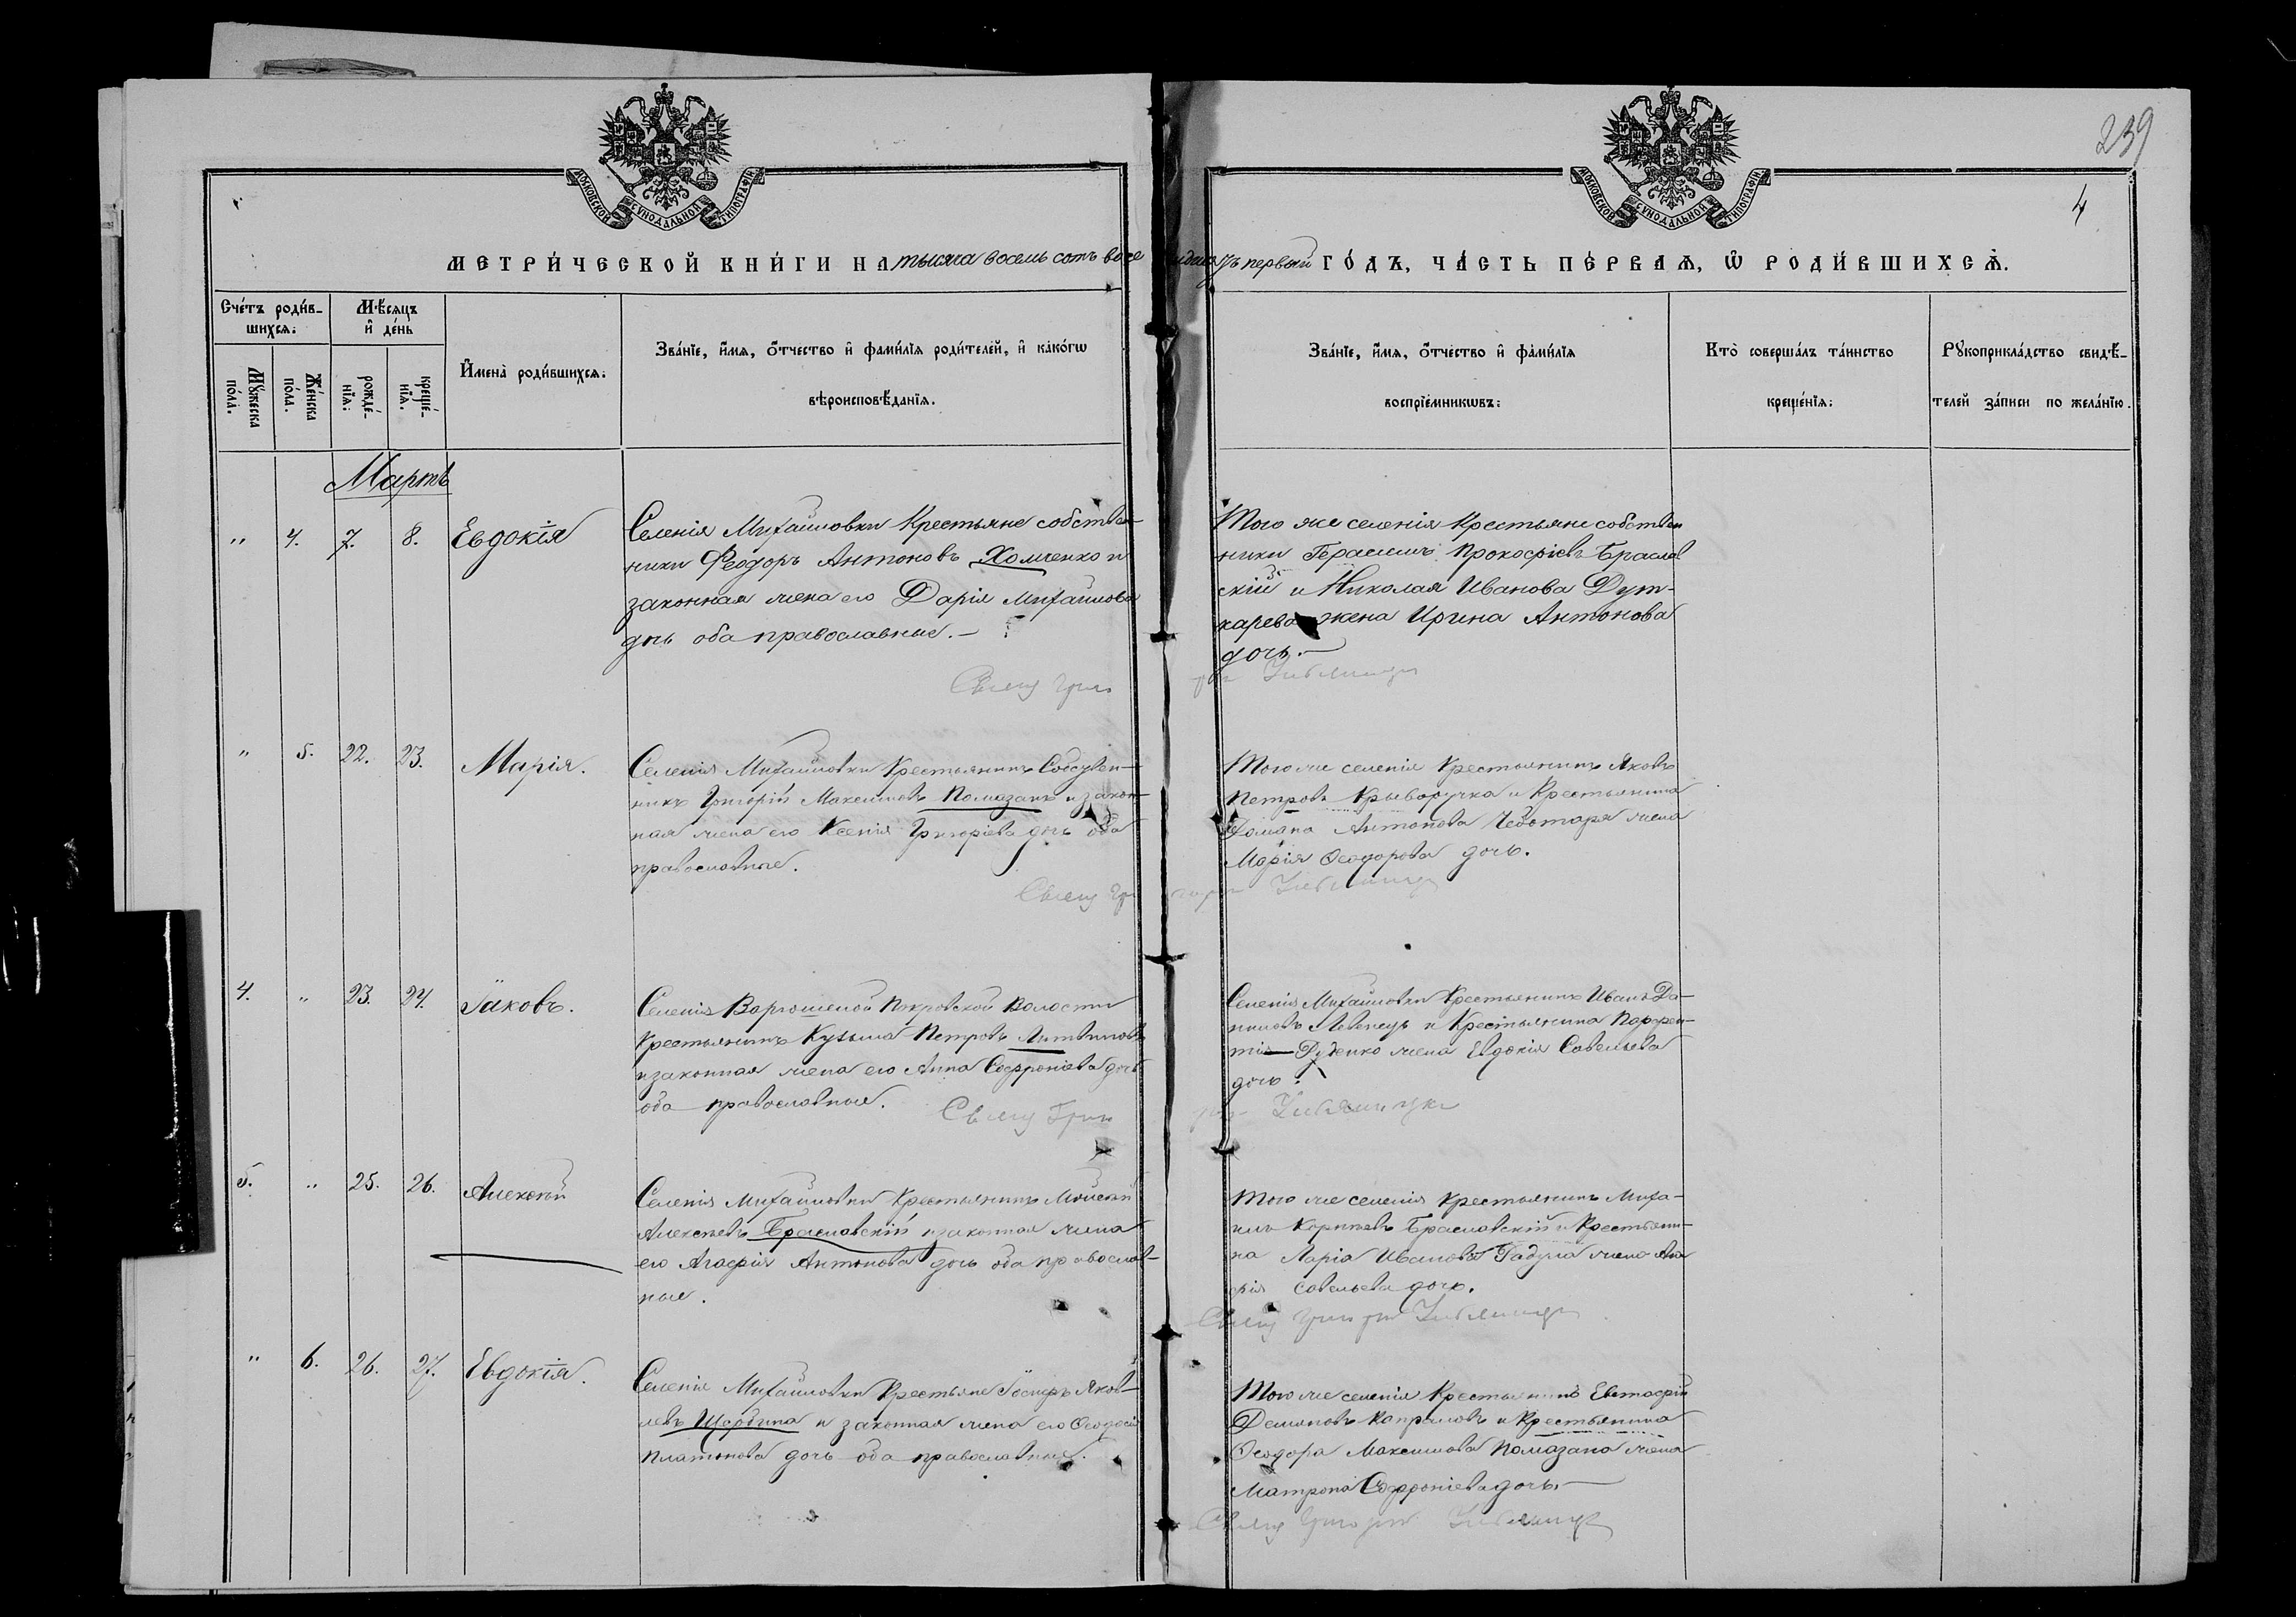 239
4
МОСКОВСКОЙ СѴНОДАЛЬНОЙ ТИПОГРАФІИ
МОСКОВСКОЙ СѴНОДАЛЬНОЙ ТИПОГРАФІИ
МЕТРИ́ЧЕСКОЙ КНИ́ГИ НА тысяча восемь сотъ первый ГО́ДЪ, ЧА́СТЬ ПЕ́РВАѦ, Ѡ РОДИ́ВШИХСѦ.
Сче́тъ роди́в-
шихсѧ:
Мꙋ́жеска
по́ла.
Же́нска
по́ла.
Мѣ́сѧцъ
и де́нь
рожде́-
нїѧ:
креще́-
нїѧ.
И҆мена̀ роди́вшихсѧ:
Зва́нїе, и҆́мѧ, ѻ҆́тчество и҆ фами́лїѧ роди́телей, и҆ како́гѡ
вѣроисповѣ́данїѧ.
Зва́нїе, и҆́мѧ, ѻ҆́тчество и҆ фами́лїѧ
воспрїе́мникѡвъ:
Кто̀ соверша́лъ та́инство
креще́нїѧ:
Рꙋкоприкла́дство свидѣ́-
телей за́писи по жела́нїю.
Мартъ
" 4. 7. 8. Евдокія
Селенія Михайловки Крестьяне собствен-
ники Феодоръ Антоновъ Хомченко и
законная жена его Дарія Михайлова
дочь оба православные.
Того же селенія Крестьяне собствен
ники Герасимъ Прокофіевъ Браслав
скій и Николая Иванова Дут-
карева жена Ирина Антонова
дочь.
Свящ Григорій
" 5. 22. 23. Марія.
Селенія Михайловки Крестьянинъ Собствен-
никъ Григорій Максимовъ Помазанъ и закон-
ная жена его Ксенія Григоріева дочь оба
православные.
Того же селенія Крестьянинъ Яковъ
Петровъ Крыворучка и Крестьянина
Романа Антонова Чеботаря жена
Марія Ѳеодорова дочь.
Свящ Григорій
4. " 23. 24. Іаковъ.
Селенія Покровской Волости
Крестьянинъ Кузьма Петровъ Литвиновъ
и законная жена его Анна Софроніева дочь
оба православные.
Селенія Михайловки Крестьянинъ Иванъ Да-
ниловъ Левенецъ и Крестьянина Парфен-
тія Руденко жена Евдокія Савельева
дочь.
Свящ Григорій
5. " 25. 26. Алексѣй
Селенія Михайловки Крестьянинъ Моисей
Алексѣевъ Браславскій и законная жена
его Агафія Антонова дочь оба православ-
ные.
Того же селенія Крестьянинъ Миха-
илъ Корнѣевъ Браславскій и Крестьяни-
на Ларіа Иванова Гадула жена
Савельева дочь.
Свящ Григорій
" 6. 26. 27. Евдокія.
Селенія Михайловки Крестьяне Іосифъ Яков-
левъ Щербина и законная жена его Ѳеодосія
Платонова дочь оба православные.
Того же селенія Крестьянинъ Евстафій
Демяновъ Капраловъ и Крестьянина
Ѳеодора Максимова Помазана жена
Матрона Софроніева дочь.
Свящ Григорій